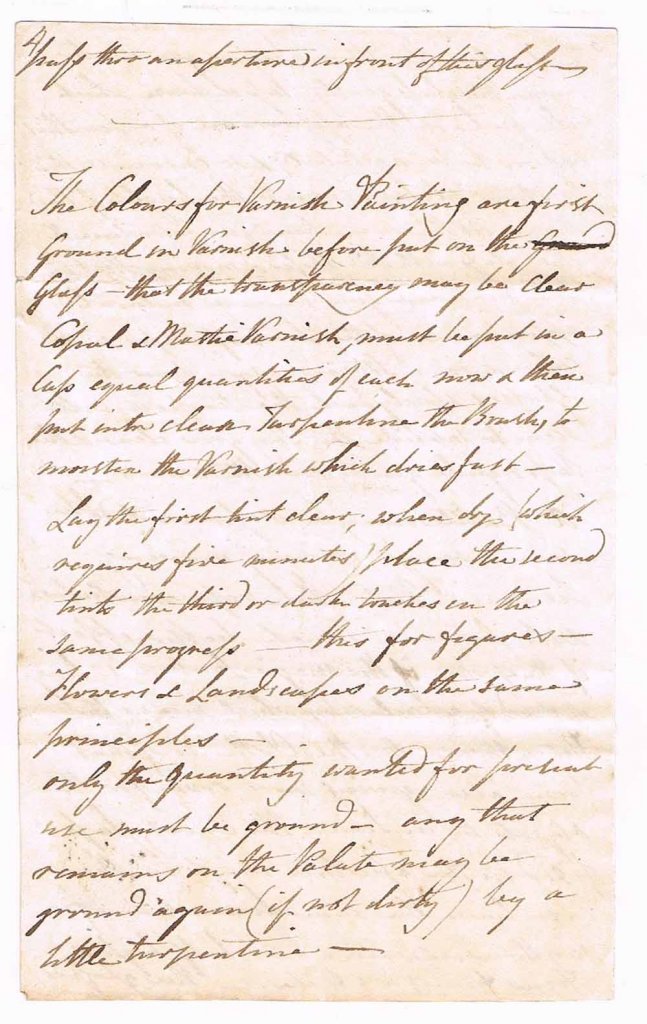 pass thro an aperture in front of this glass
The Colours for Varnish Painting are first
Ground in Varnish before put on the Ground
Glass – that the transparency may be clear
Copal & Mastic Varnish, must be put in a
Cup equal quantities of each now & then
put into clean Turpentine the Brush, to
moisten the Varnish which dries fast –
Lay the first tint clear, when dry (which
requires five minutes) place the second
tint the third or dark touches in the
same progress – this for figures –
Flowers & Landscapes on the same
principles –
only the quantity wanted for present
use must be ground – any that
remains on the Palate may be
ground again (if not dirty) by a
little turpentine –